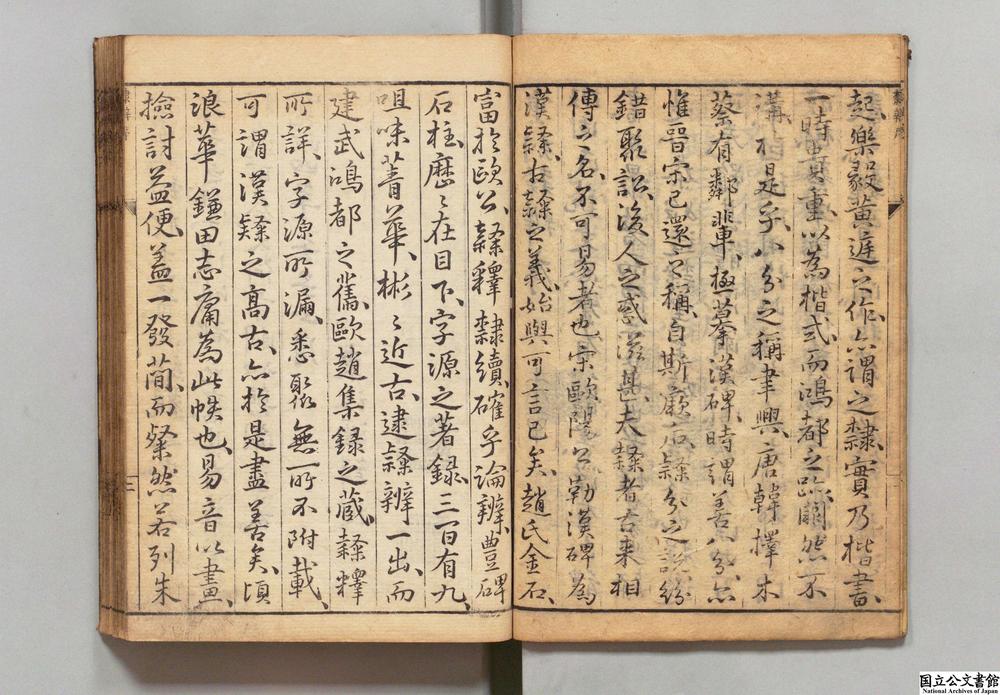 起樂毅黃庭之作、亦謂之隸、實乃楷書、
一時貴重以為楷式、而鴻都之跡闃然不
講、不是乎、八分之稱、聿興、唐韓擇木
蔡有鄰輩、極摹漢碑、時謂善八分、亦
惟晉宋已還之稱、自斯厥后、隸分之說紛
錯聚訟、後人之惑滋甚、夫隸者古來相
傳之名、不可易者也、宋歐陽公勒漢碑為
漢隸、古隸之義、始與可言已矣、趙氏金石、
富於歐公、隸釋隸續、確乎論辨、豊碑
石柱、歷〻在目下、字源之著録、三百有九、
咀味菁華、彬〻近古、逮隸辨一出、而
建武鴻都之舊、歐趙集録之蔵、隸釋
所詳、字源所漏、悉聚無所不附載、
可謂漢隸之高古、亦於是盡善矣、頃
浪華鎌田志庸為此帙也、易音以畫、
撿討益便、蓋一發蕳、而粲然若列朱
隸辨序
二
国立公文書館
National Archives of Japan